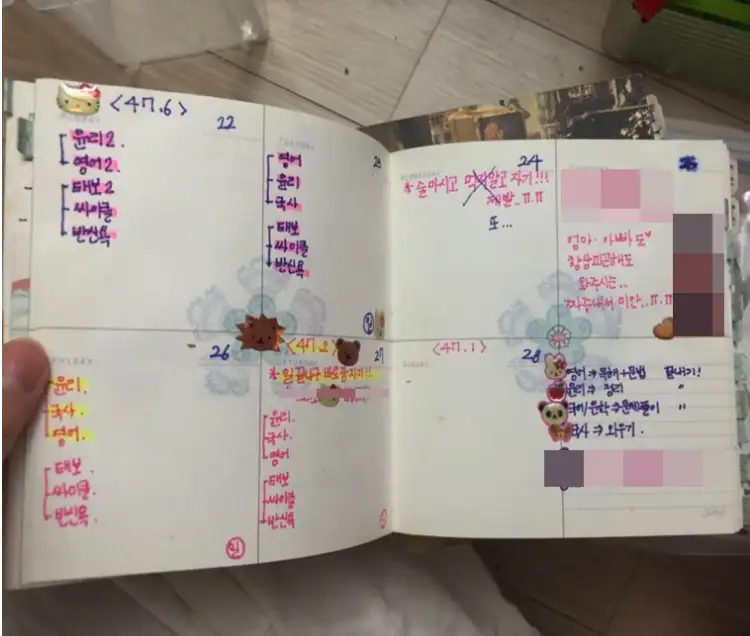 <47.6>
22
윤리2.
영어2.
태보2
싸이클
반신욕
영어
윤리
국사
태보
싸이클
반신욕
24
* 술마시고 먹지말고 자기!!!
제발..ㅠ.ㅠ
또...
엄마. 아빠 도
항상피곤해도
와주시는..
26
윤리.
국사.
영어.
태보.
싸이클.
반신욕.
<47.2>
27
윤리.
국사.
영어
태보
싸이클
반신욕
<47.1>
28
영어 ⇒ 독해+문법 끝내기!
윤리 ⇒ 정리 "
국어/문학 ⇒ 문제풀이 "
국사 ⇒ 외우기.